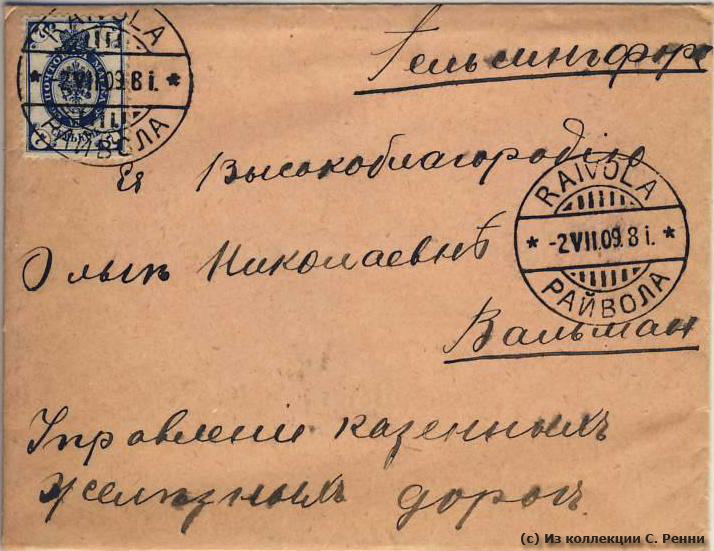 RAIVOLA
* 2 VII.09. 8 i. *
РАЙВОЛА
Гельсингфорс
Ея Высокоблагородію
RAIVOLA
* -2 VII.09. 8 i. *
РАЙВОЛА
Ольгѣ Николаевнѣ
Вальман
Управленіе казенныхъ
желѣзныхъ дорогъ
(c) Из коллекции С. Ренни